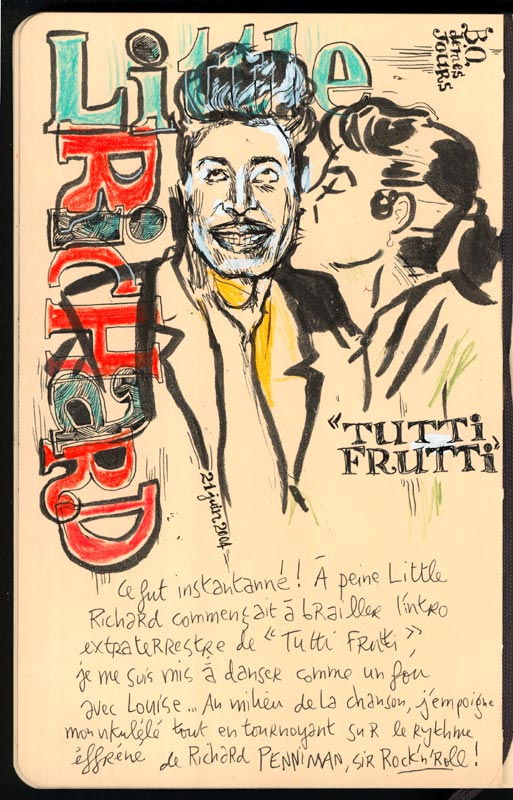 Little
RicHaRD
B.O.
de mes
JOURS
"TUTTi
FRUTTi"
21 juin 2004
Ce fut instantanné! À peine Little
Richard commençait à brailler l'intro
extraterrestre de "Tutti Frutti",
je me suis mis à danser comme un fou
avec Louise... Au milieu de la chanson, j'empoigne
mon ukulélé tout en tournoyant sur le rythme
éffréné de Richard PENNIMAN, sir Rock'n'Roll!